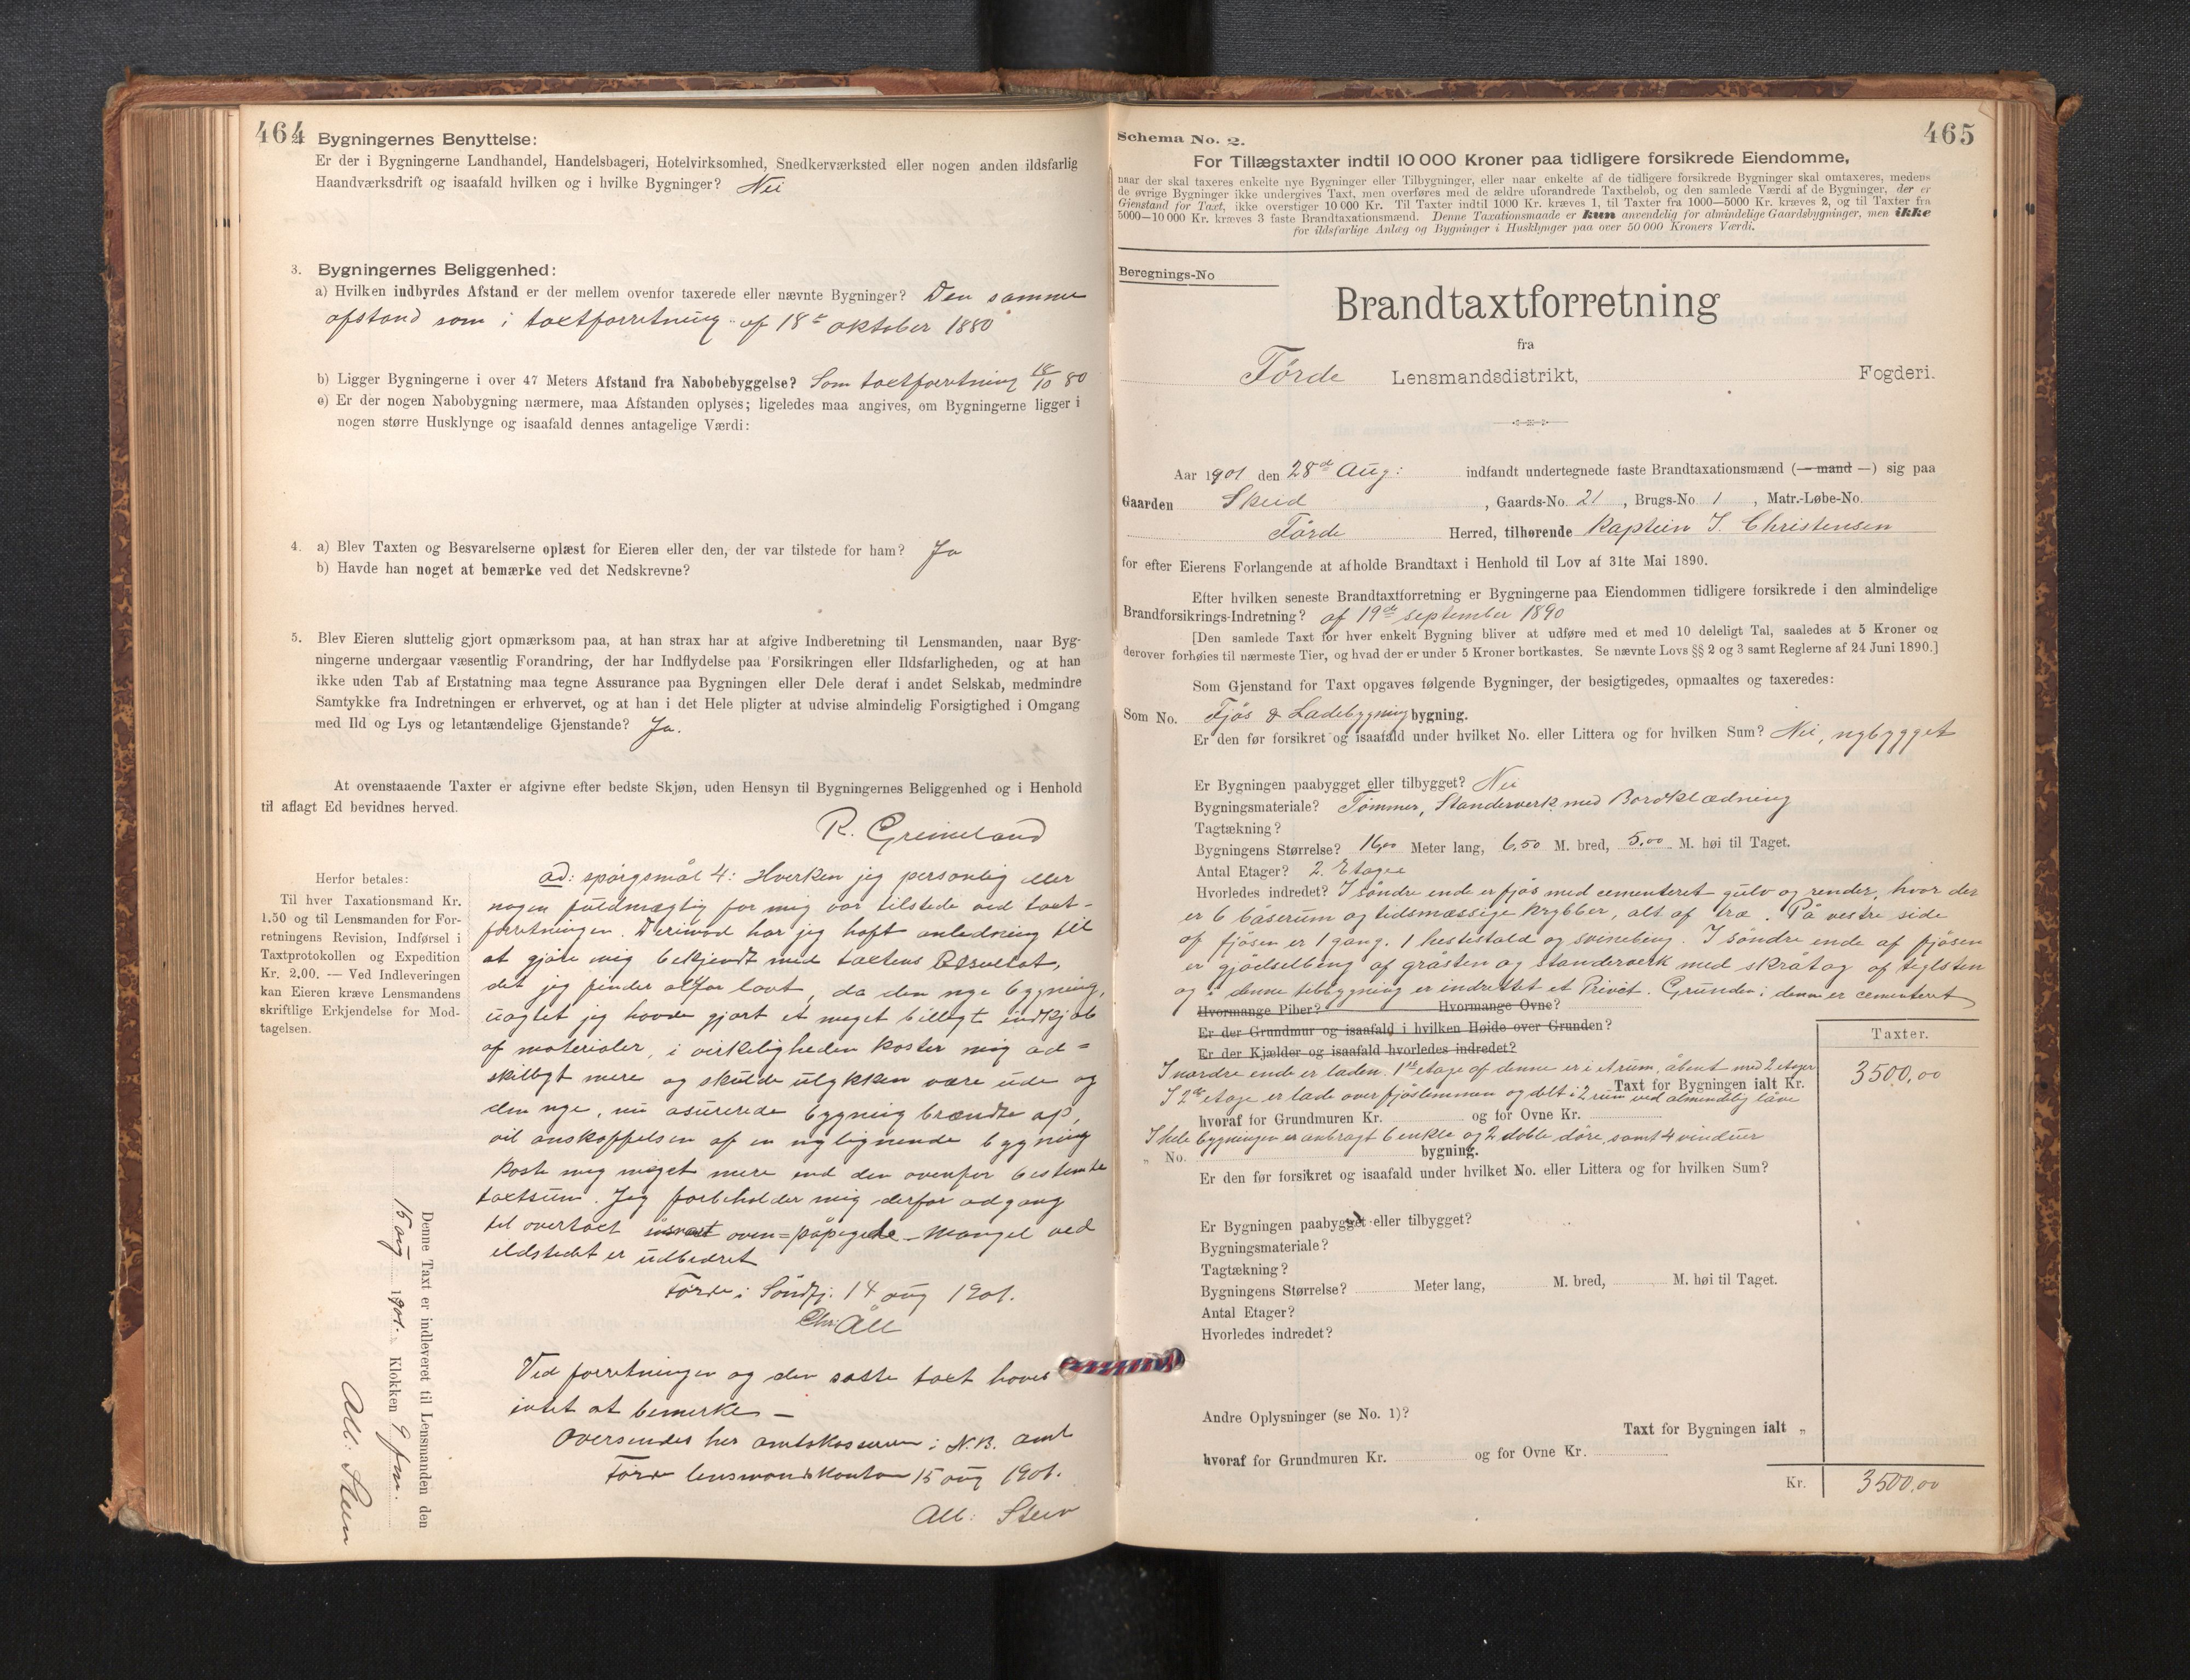 464
Bygningernes Benyttelse:
Er der i Bygningerne Landhandel, Handelsbageri, Hotelvirksomhed, Snedkerværksted eller nogen anden ildsfarlig
Haandværksdrift og isaafald hvilken og i hvilke Bygninger? Nei
3. Bygningernes Beliggenhed:
a) Hvilken indbyrdes Afstand er der mellem ovenfor taxerede eller nævnte Bygninger? Den samme
afstand som i taxtforretning af 18de oktober 1880
b) Ligger Bygningerne i over 47 Meters Afstand fra Nabobebyggelse? Som taxtforretning 18/10 80
c) Er der nogen Nabobygning nærmere, maa Afstanden oplyses; ligeledes maa angives, om Bygningerne ligger i
nogen større Husklynge og isaafald dennes antagelige Værdi:
4. a) Blev Taxten og Besvarelserne oplæst for Eieren eller den, der var tilstede for ham? Ja
b) Havde han noget at bemærke ved det Nedskrevne?
5. Blev Eieren sluttelig gjort opmærksom paa, at han strax har at afgive Indberetning til Lensmanden, naar Byg-
ningerne undergaar væsentlig Forandring, der har Indflydelse paa Forsikringen eller Ildsfarligheden, og at han
ikke uden Tab af Erstatning maa tegne Assurance paa Bygningen eller Dele deraf i andet Selskab, medmindre
Samtykke fra Indretningen er erhvervet, og at han i det Hele pligter at udvise almindelig Forsigtighed i Omgang
med Ild og Lys og letantændelige Gjenstande? Ja.
At ovenstaaende Taxter er afgivne efter bedste Skjøn, uden Hensyn til Bygningernes Beliggenhed og i Henhold
til aflagt Ed bevidnes herved.
R. Grimeland
Herfor betales:
Til hver Taxationsmand Kr.
1.50 og til Lensmanden for For-
retningens Revision, Indførsel i
Taxtprotokollen og Expedition
Kr. 2.00. — Ved Indleveringen
kan Eieren kræve Lensmandens
skriftlige Erkjendelse for Mod-
tagelsen.
ad: spørgsmål 4: Hverken jeg personlig eller
nogen fuldmægtig for mig var tilstede ved taxt-
forretningen. Derimod har jeg haft anledning til
at gjøre mig bekjendt med taxtens Resultat,
det jeg finder altfor lavt, da den nye bygning,
uagtet jeg havde gjort et meget billigt indkjøb
af materialer, i virkeligheden koster mig ad=
skilligt mere og skulde ulykken være ude og
den nye, nu asurerede bygning brændte op,
vil anskaffelsen af en ny lignende bygning
koste mig meget mere end den ovenfor bestemte
taxtsum. Jeg forbeholder mig derfor adgang
til overtaxt oven=påpegede Mangel ved
ildstedet er udbedret
Førde i Søndfj. 14 aug 1901.
Chr: Åll
Ved forretningen og den satte taxt haves
intet at bemerke —
Oversendes her amtskasserer i N.B. amt
Førde lensmandskontor 15 aug 1901.
All: Steen
Denne Taxt er indleveret til Lensmanden den
15 aug 1901. Klokken 9 fm.
All: Steen
465
Schema No. 2.
For Tillægstaxter indtil 10 000 Kroner paa tidligere forsikrede Eiendomme,
naar der skal taxeres enkelte nye Bygninger eller Tilbygninger, eller naar enkelte af de tidligere forsikrede Bygninger skal omtaxeres, medens
de øvrige Bygninger ikke undergives Taxt, men overføres med de ældre uforandrede Taxtbeløb, og den samlede Værdi af de Bygninger, der er
Gjenstand for Taxt, ikke overstiger 10 000 Kr. Til Taxter indtil 1000 Kr. kræves 1, til Taxter fra 1000—5000 Kr. kræves 2, og til Taxter fra
5000—10 000 Kr. kræves 3 faste Brandtaxationsmænd. Denne Taxationsmaade er kun anvendelig for almindelige Gaardsbygninger, men ikke
for ildsfarlige Anlæg og Bygninger i Husklynger paa over 50 000 Kroners Værdi.
Beregnings-No
Brandtaxtforretning
fra
Førde Lensmandsdistrikt, Fogderi.
Aar 1901 den 28de Aug: indfandt undertegnede faste Brandtaxationsmænd (— mand —) sig paa
Gaarden Skeid, Gaards-No. 21, Brugs-No 1, Matr.-Løbe-No.
Førde Herred, tilhørende Kaptein J. Christensen
for efter Eierens Forlangende at afholde Brandtaxt i Henhold til Lov af 31te Mai 1890.
Efter hvilken seneste Brandtaxtforretning er Bygningerne paa Eiendommen tidligere forsikrede i den almindelige
Brandforsikrings-Indretning? af 19de september 1890
[Den samlede Taxt for hver enkelt Bygning bliver at udføre med et med 10 deleligt Tal, saaledes at 5 Kroner og
derover forhøies til nærmeste Tier, og hvad der er under 5 Kroner bortkastes. Se nævnte Lovs §§ 2 og 3 samt Reglerne af 24 Juni 1890.]
Som Gjenstand for Taxt opgaves følgende Bygninger, der besigtigedes, opmaaltes og taxeredes:
Som No. Fjøs & Ladebygning bygning.
Er den før forsikret og isaafald under hvilket No. eller Littera og for hvilken Sum? Nei, nybygget
Er Bygningen paabygget eller tilbygget? Nei
Bygningsmateriale? Tømmer, Standerverk med Bordklædning
Tagtækning?
Bygningens Størrelse? 16,00 Meter lang, 6,50 M. bred, 5,00 M. høi til Taget.
Antal Etager? 2. Etager
Hvorledes indredet? I søndre ende er fjøs med cementeret gulv og render, hvor der
er 6 båserum og tidsmæssige krybber, alt af træ. På vestre side
af fjøsen er 1 gang. 1 hestestald og svinebing. I søndre ende af fjøsen
er gjødselbing af gråsten og standerverk med skråtag af teglsten
og i denne tilbygning er indrettet et Privet. Grunden i denne er cementeret
Hvormange Piber? Hvormange Ovne?
Er der Grundmur og isaafald i hvilken Høide over Grunden?
Er der Kjælder og isaafald hvorledes indredet?
Taxter.
I nordre ende er laden. 1ste etage af denne er i et rum, åbent med 2 etager
Taxt for Bygningen ialt Kr. 3500,00
I 2den etage er lade over fjøslemmen og delt i 2 rum ved almindelig låve
hvoraf for Grundmuren Kr. og for Ovne Kr.
I hele bygningen er anbragt 6 enkle og 2 doble døre, samt 4 vinduer
„ No. bygning.
Er den før forsikret og isaafald under hvilket No. eller Littera og for hvilken Sum?
Er Bygningen paabygget eller tilbygget?
Bygningsmateriale?
Tagtækning?
Bygningens Størrelse? Meter lang, M. bred, M. høi til Taget.
Antal Etager?
Hvorledes indredet?
Andre Oplysninger (se No. 1)?
Taxt for Bygningen ialt „
hvoraf for Grundmuren Kr. og for Ovne Kr.
Kr. 3500,00